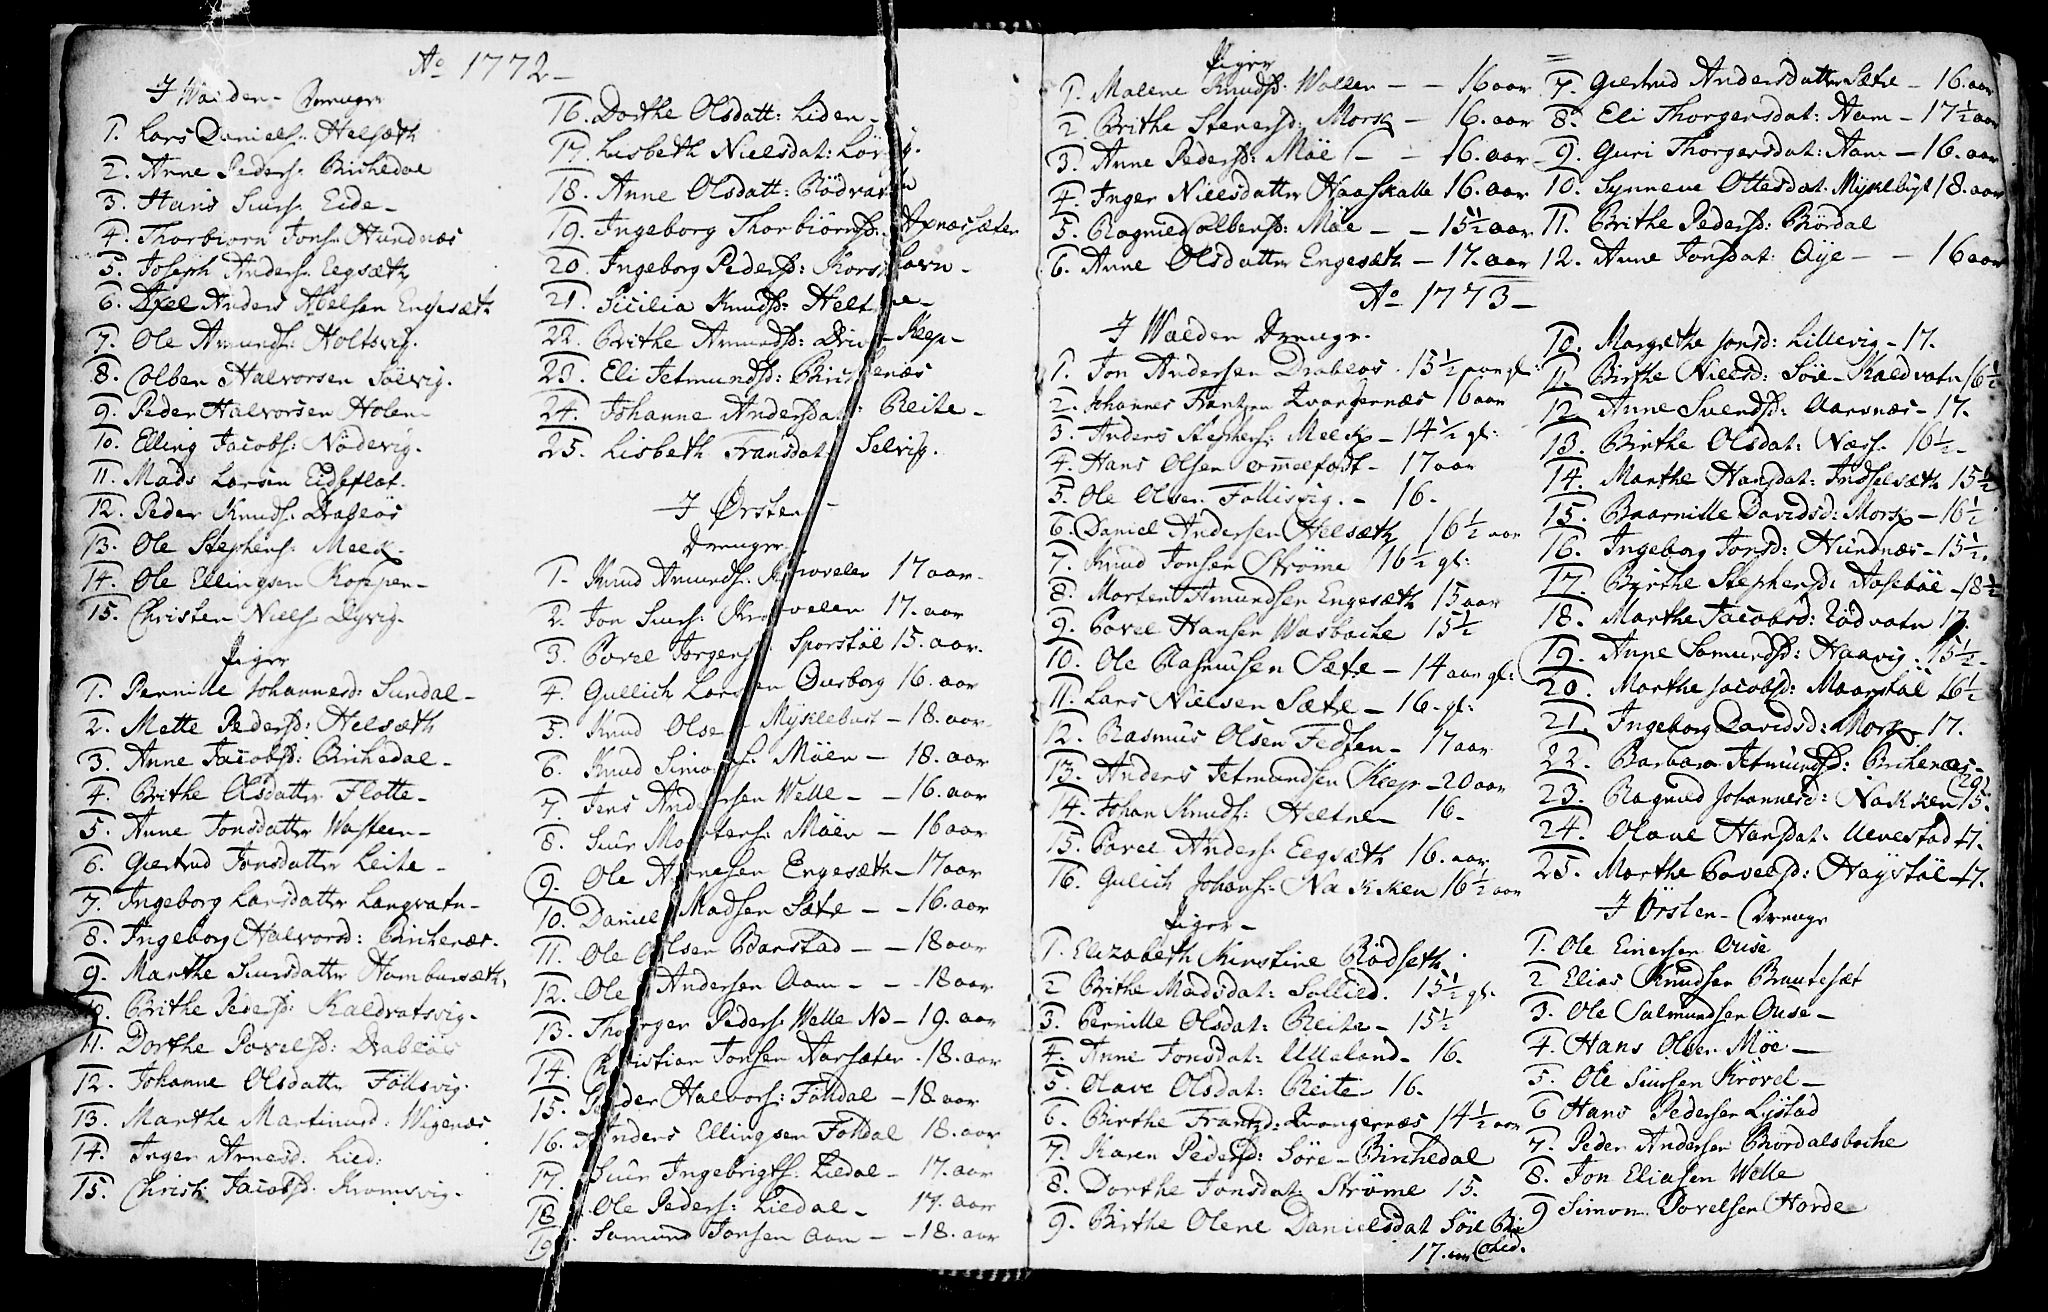 Ao 1772
I Walden - Drenge
1. Lars Daniels: Helsæth
2. Arne Peders: Birchedal
3. Hans Siurs: Eide
4. Thorbiorn Jons: Hundnæs
5. Joseph Anders: Eegsæth
6. Anders Abelsen Engesæth
7. Ole Amunds: Holtsvig.
8. Colben Halvorsen Sølvig.
9. Peder Halvorsen Holen
10. Elling Jacobs: Nødevig.
11. Mads Larsen Eideflot.
12. Peder Knuds: Drabløs
13. Ole Stephens: Meek.
14. Ole Ellingsen Koppen
15. Christen Niels: Dyvig.
Piger
1. Pernille Johannesd: Sundal
2. Mette Pedersd: Helsæth
3. Anne Jacobsd: Birchedal
4. Brithe Olsdatter Flotte
5. Anne Jonsdatter Wasteen
6. Giertrud Jonsdatter Leite
7. Ingeborg Larsdatter Langvatn
8. Ingeborg Halvorsd: Birchenæs.
9. Marthe Siursdatter Hambursæth,
10. Brithe Pedersd: Kaldvatsvig.
11. Dorthe Povelsd: Drabløs
12. Johanne Olsdatter Follsvig.
13. Marthe Martinusd: Wigenæs
14. Inger Arnesd: Lied:
15. Christ: Jacobsd: Kromsvig.
16. Dorthe Olsdatt: Liden
17. Lisbeth Nielsdat:
18. Anne Olsdatt: Rødvatn
19. Ingeborg Thorbiørnsd: Axnæssæter
20. Ingeborg Pedersd: Korshavn
21. Sicilia Knudsd: Heltne
22. Brithe Amundsd: Klep
23. Eli Jetmundsd: Birchenæs
24. Johanne Andersdat: Reite
25. Lisbeth Fransdat: Selvig.
I Ørsten
Drenge
1. Knud Amunds: Krøvelen 17 aar.
2. Jon Siurs: Krøvelen 17. aar
3. Povel Jørgens: Sporstøl 15. aar.
4. Gullich Larsen Ourborg 16. aar
5. Knud Olsen Myklebust - 18. aar
6. Knud Simons: Møen - 18. aar
7. Jens Andersen Welle - - 16. aar
8. Siur Mortens: Møen - 16 aar
9. Ole Arnesen Engesæth - 17 aar
10. Daniel Madsen Sæte - - 16. aar
11. Ole Olsen Barstad - - 18 aar
12. Ole Andersen Aam - - - 18 aar
13. Thorger Peders: Welle NB - 19. aar
14. Christian Jonsen Aarsæter - 18. aar
15. Peder Halvors: Foldal - 18. aar
16. Anders Ellingsen Foldal 18. aar
17. Siur Ingebrigts: Liedal - 17. aar
18. Ole Peders: Liedal - 17. aar
19. Samund Jonsen Aam - - 18. aar
Piger
1. Malene Knudsd: Wallen - - 16 aar
2. Brithe Stenersd: Morsk - 16. aar
3. Anne Pedersd: Møe - - 16. aar
4. Inger Nielsdatter Haaskalle 16. aar
5. Ragnied Colbensd: Møe - - 15½ aar
6. Anne Olsdatter Engesæth - 17. aar
7. Giertrud Andersdatter Sæte - 16. aar
8. Eli Thorgersdat: Aam - 17½ aar
9. Guri Thorgersdat: Aam - 16. aar
10. Synneve Ottesdat: Myklebust 18. aar
11. Brithe Pedersd: Børdal
12. Anne Jonsdat: Øye - - 16 aar
Ao 1773
I Walden Drenge.
1. Jon Andersen Drabløs. 15½ aar gl:
2. Johannes Frantzen Zvangernæs 16 aar
3. Anders Stephens: Meek - 14½ gl:
4. Hans Olsen ommelfodt - 17 aar
5. Ole Olsen Follisvig. - 16.
6. Daniel Andersen Helsæth 16½ aar
7. Knud Jonsen Strøme 16½ gl:
8. Morten Amundsen Engesæth 15 aar
9. Povel Hansen Wasbache 15½
10. Ole Rasmusen Sæte - 14 aar gl:
11. Lars Nielsen Sæte - 16. gl:
12. Rasmus Olsen Fedsen - 17 aar
13. Anders Jetmundsen Klep - 20 aar
14. Johan Knuds: Heltne - 16.
15. Povel Anders: Eegsæth 16. aar
16. Gulich Johans: Nakken 16½ aar
Piger
1. Elizabeth Kirstine Rødseth.
2 Brithe Madsdat: Sollied. 15½ gl.
3. Pernille Olsdat: Reite - 15½
4. Anne Jonsdat: Ulleland - 16.
5. Olave Olsdat: Reite - 16.
6. Birthe Frantzd: Zvangernæs 14½ aar
7. Karen Pedersd: Søre-Birchedal
8. Dorthe Jonsdat: Strøme 15.
9. Birthe Olene Danielsdat Søre Bir
17. aar chid.
10. Margrethe Jonsd: Lillevig - 17.
11. Birthe Nielsd: Søre-Kaldvatn 16½
12. Anne Svendsd: Aarsnæs - 17.
13. Birthe Olsdat: Næss - 16½
14. Marthe Hansdat: Indselsæth 15½
15. Baarnille Davidsd: Morsk - 16½
16. Ingeborg Jonsd: Hundnæs - 15½
17. Birthe Stephensd: Aasebøe - 18½
18. Marthe Jacobsd: Rødvatn 17.
19. Anne Samundsd: Haavig: 15½
20. Marthe Jacobsd: Maarstøl 16½
21. Ingeborg Davidsd: Morsk - 17.
22. Barbara Jetmundsd: Birchenæs - (20)
23. Ragnild Johannesd: Nakken 15.
24. Olave Hansdat: Ulvestad 17.
25. Marthe Povelsd: Haystøl 17.
I Ørsten - Drenge
1. Ole Einersen Ouse
2 Elias Knudsen Brautesæt
3. Ole Salmundsen Ouse
4. Hans Olsen Møe
5. Ole Siursen Krøvel
6 Hans Pedersen Lystad
7. Peder Andersen Bjørdalsbache
8. Jon Eliasen Welle
9 Simon Povelsen Horde